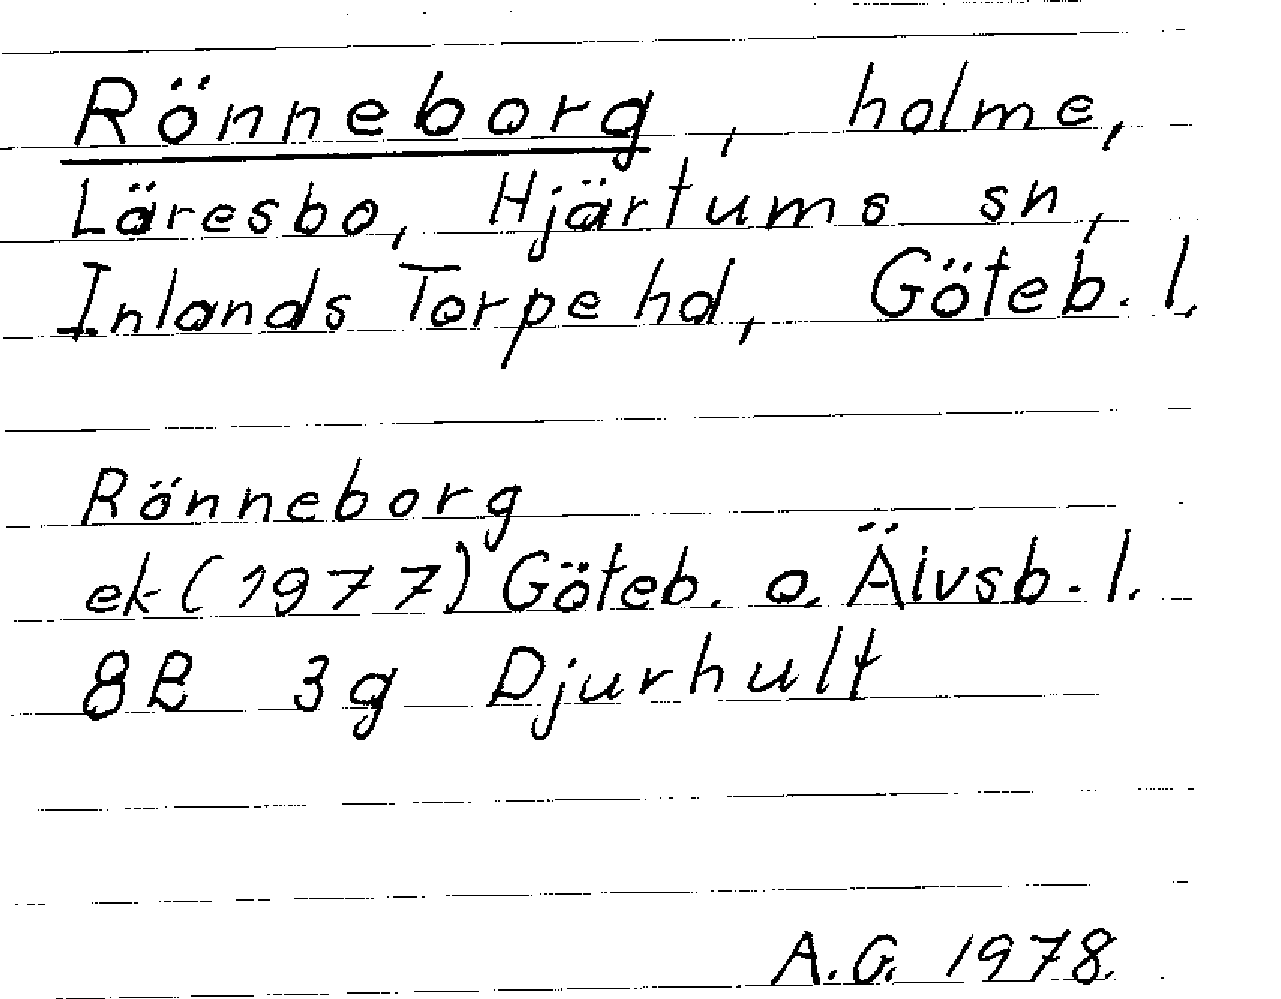 Rönneborg, holme,
Läresbo, Hjärtums sn,
Inlands Torpe hd, Göteb. l.
Rönneborg
ek (1977) Göteb. o. Älvsb. l.
8B 3g Djurhult
A.G. 1978.